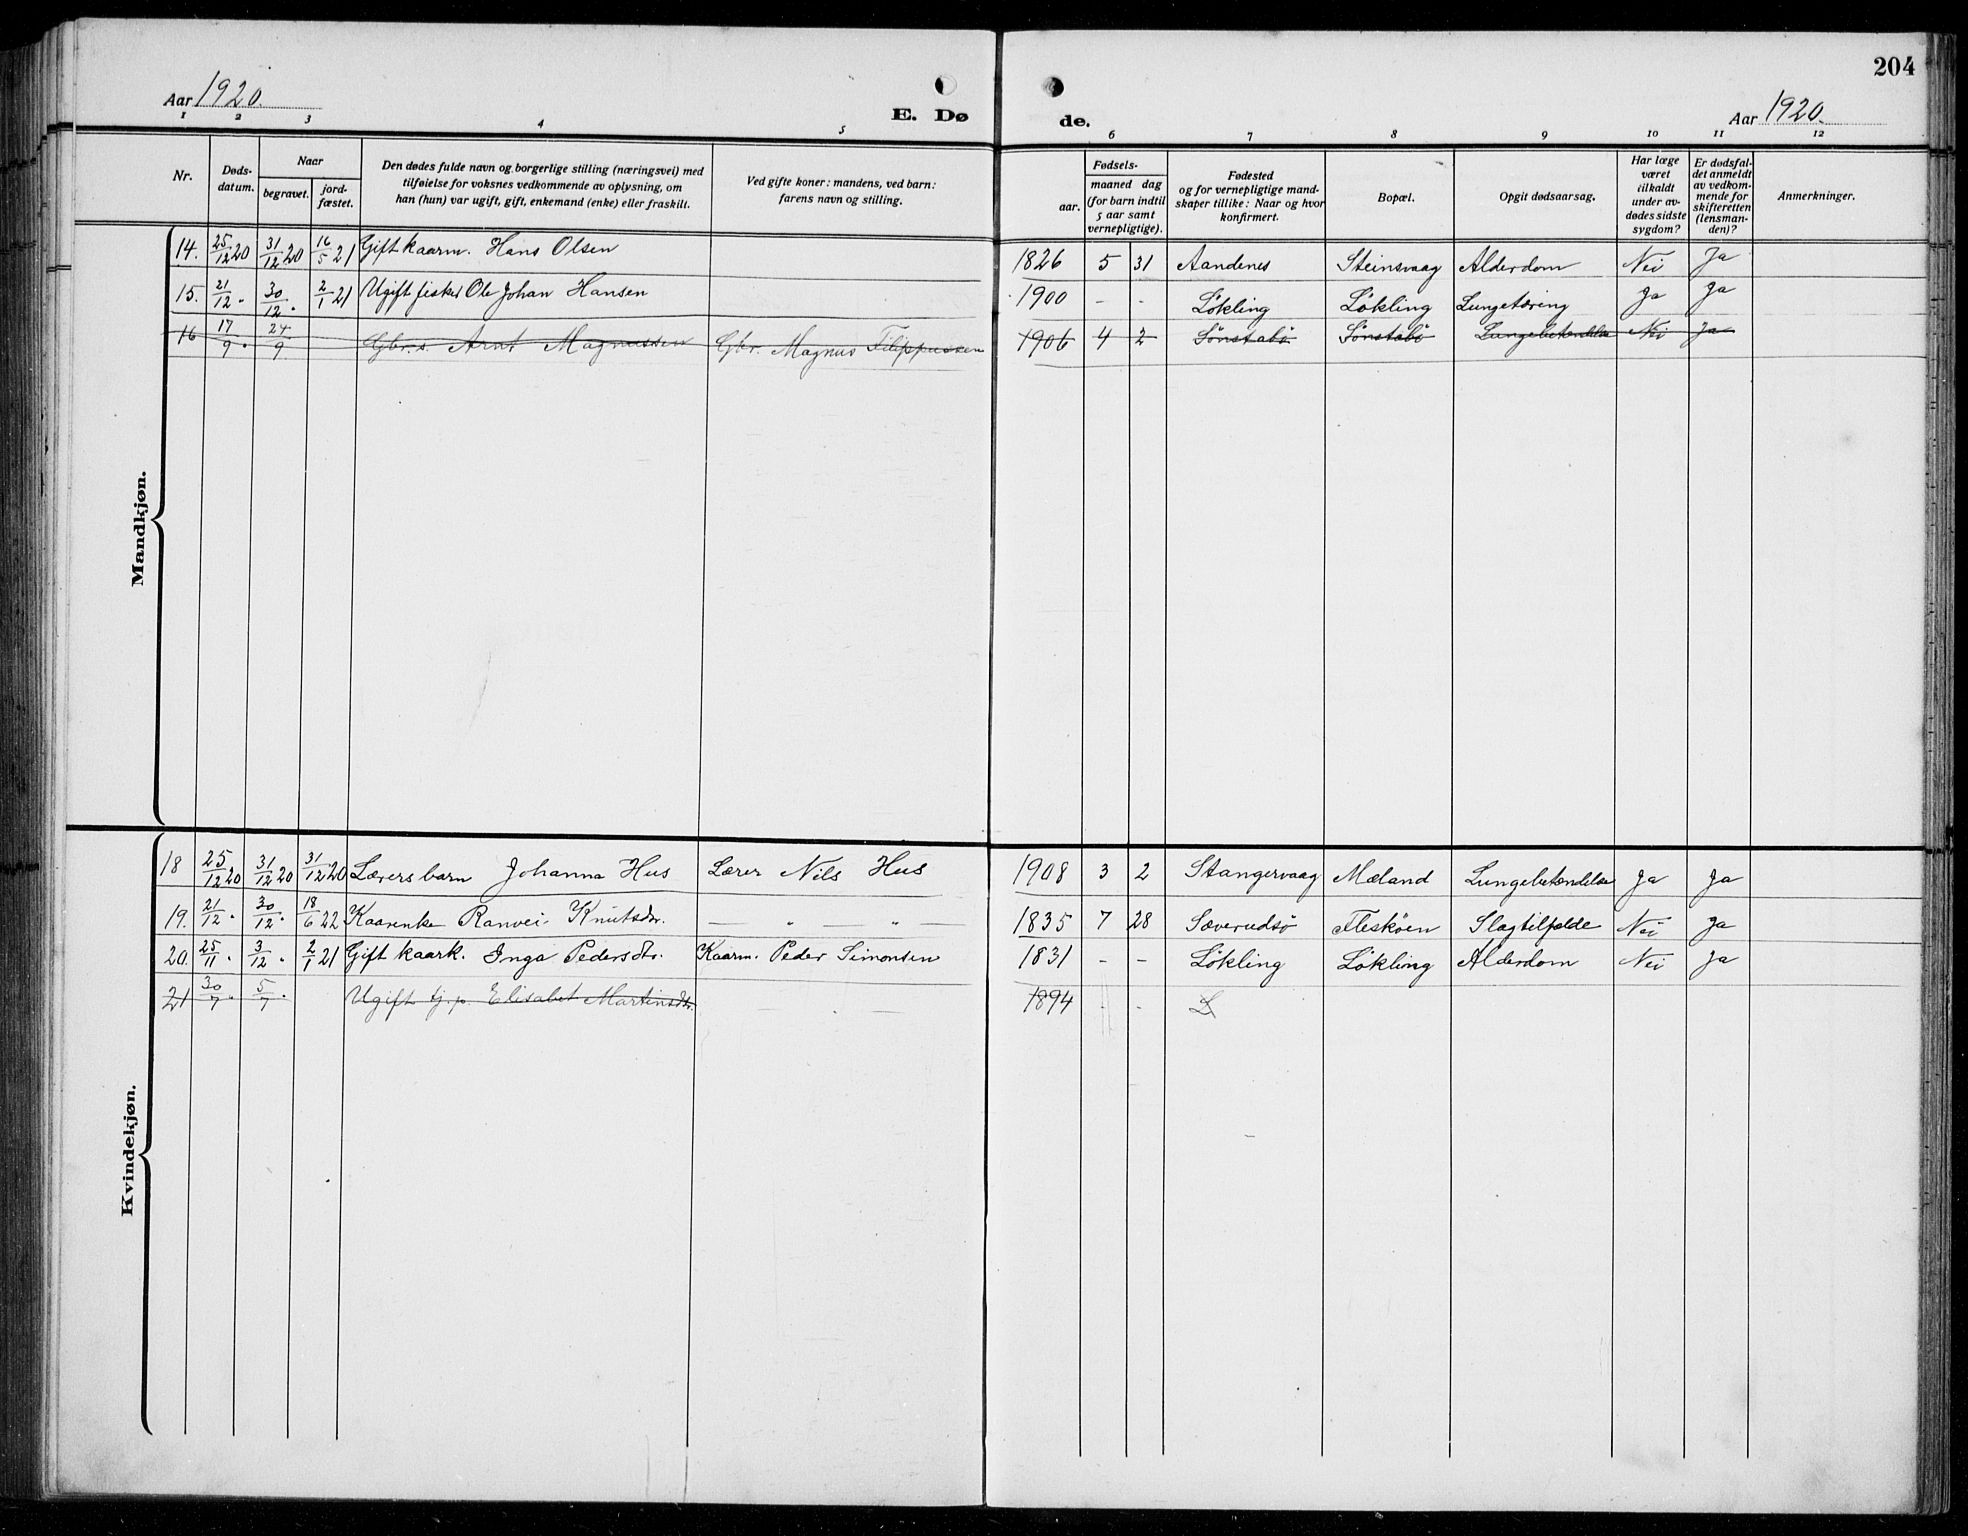 204
Aar 1920. E. Døde. Aar 1920.
1 2 3 4 5 6 7 8 9 10 11 12
Nr.
Dødsdatum.
Naar
begravet.
jordfæstet.
Den dødes fulde navn og borgerlige stilling (næringsvei) med
tilføielse for voksnes vedkommende av oplysning, om
han (hun) var ugift, gift, enkemand (enke) eller fraskilt.
Ved gifte koner: mandens, ved barn:
farens navn og stilling.
Fødsels-
aar.
maaned dag
(for barn indtil
5 aar samt
vernepligtige).
Fødested
og for vernepligtige mand-
skaper tillike: Naar og hvor
konfirmert.
Bopæl.
Opgit dødsaarsag.
Har læge
været
tilkaldt
under av-
dødes sidste
sygdom?
Er dødsfal-
det anmeldt
av vedkom-
mende for
skifteretten
(lensman-
den)?
Anmerkninger.
Mandkjøn.
14. 25/12 20 31/12 20 16/5 21 Gift kaarm. Hans Olsen 1826 5 31 Aandenes Steinsvaag Alderdom Nei Ja
15. 21/12 " 30/12 " 2/1 21 Ugift fisker Ole Johan Hansen 1900 - - Løkling Løkling Lungetæring Ja Ja
16 17/9 " 24/9 Gbr. s. Arnt Magnussen Gbr. Magnus Filippussen 1906 4 2 Sønstabø Sønstabø Lungebetændelse Nei Ja
Kvindekjøn.
18 25/12 20 31/12 20 31/12 20 Lærersbarn Johanna Hus Lærer Nils Hus 1908 3 2 Stangervaag Mæland Lungebetændelse Ja Ja
19. 21/12 " 30/12 " 18/6 22 Kaarenke Ranvei Knutsdtr. — " — " 1835 7 28 Sæverudsø Fleskøen Slagtilfælde Nei Ja
20. 25/11 " 3/12 " 2/1 21 Gift kaark. Inga Pedersdtr. Kaarm. Peder Simonsen 1831 - - Løkling Løkling Alderdom Nei Ja
21 30/7 " 5/7 " Ugift tj.p. Elisabet Martinsdtr. — " — 1894 - - L